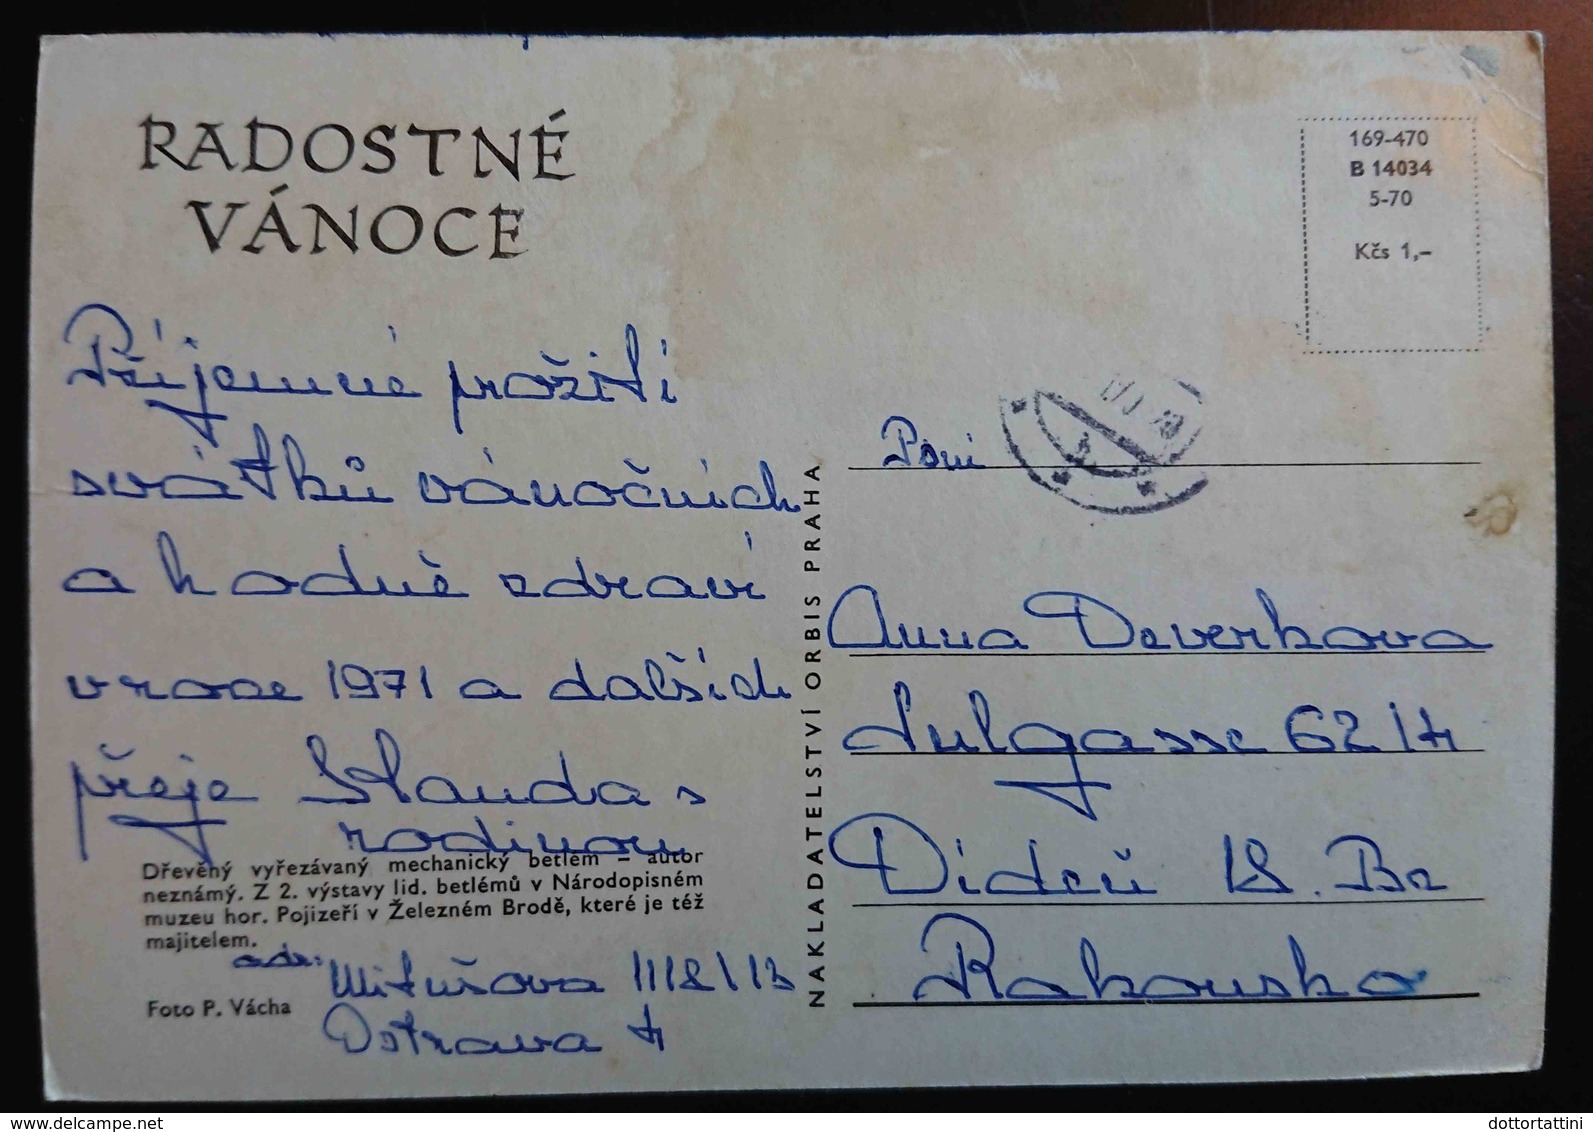 RADOSTNÉ
VÁNOCE
169-470
B 14034
5-70
Kčs 1,-
Příjemné prožití
svátků vánočních
a hodně zdraví
v roce 1971 a dalších
přeje Standa s
rodinou
Dřevěný vyřezávaný mechanický betlém – autor
neznámý. Z 2. výstavy lid. betlémů v Národopisném
muzeu hor. Pojizeří v Železném Brodě, které je též
majitelem.
adr. Mitušova
Foto P. Vácha
Ostrava 4
NAKLADATELSTVÍ ORBIS PRAHA
Paní
Anna Deverkova
62/4
Vídeň 18. Bz
Rakousko
www.delcampe.net
dottortattini